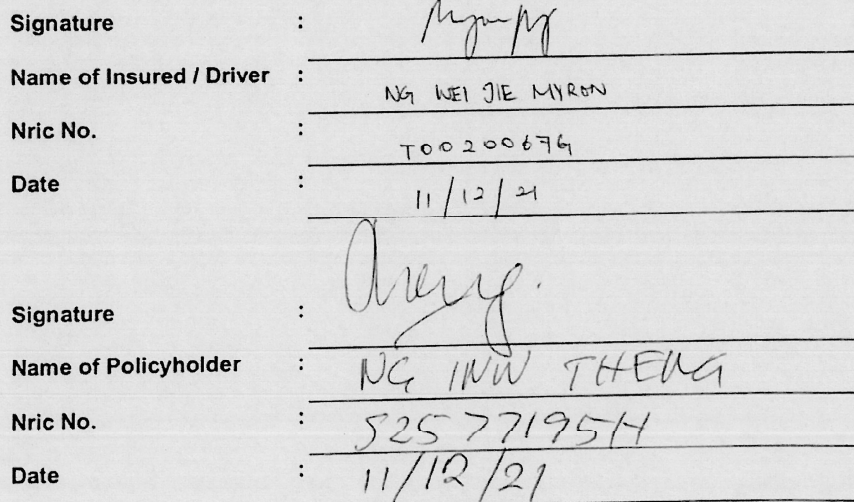 Signature :
Name of Insured / Driver : NG WEI JIE MYRON
Nric No. : T0020067G
Date : 11/12/21
Signature :
Name of Policyholder : NG INW THENG
Nric No. : S2577195H
Date : 11/12/21